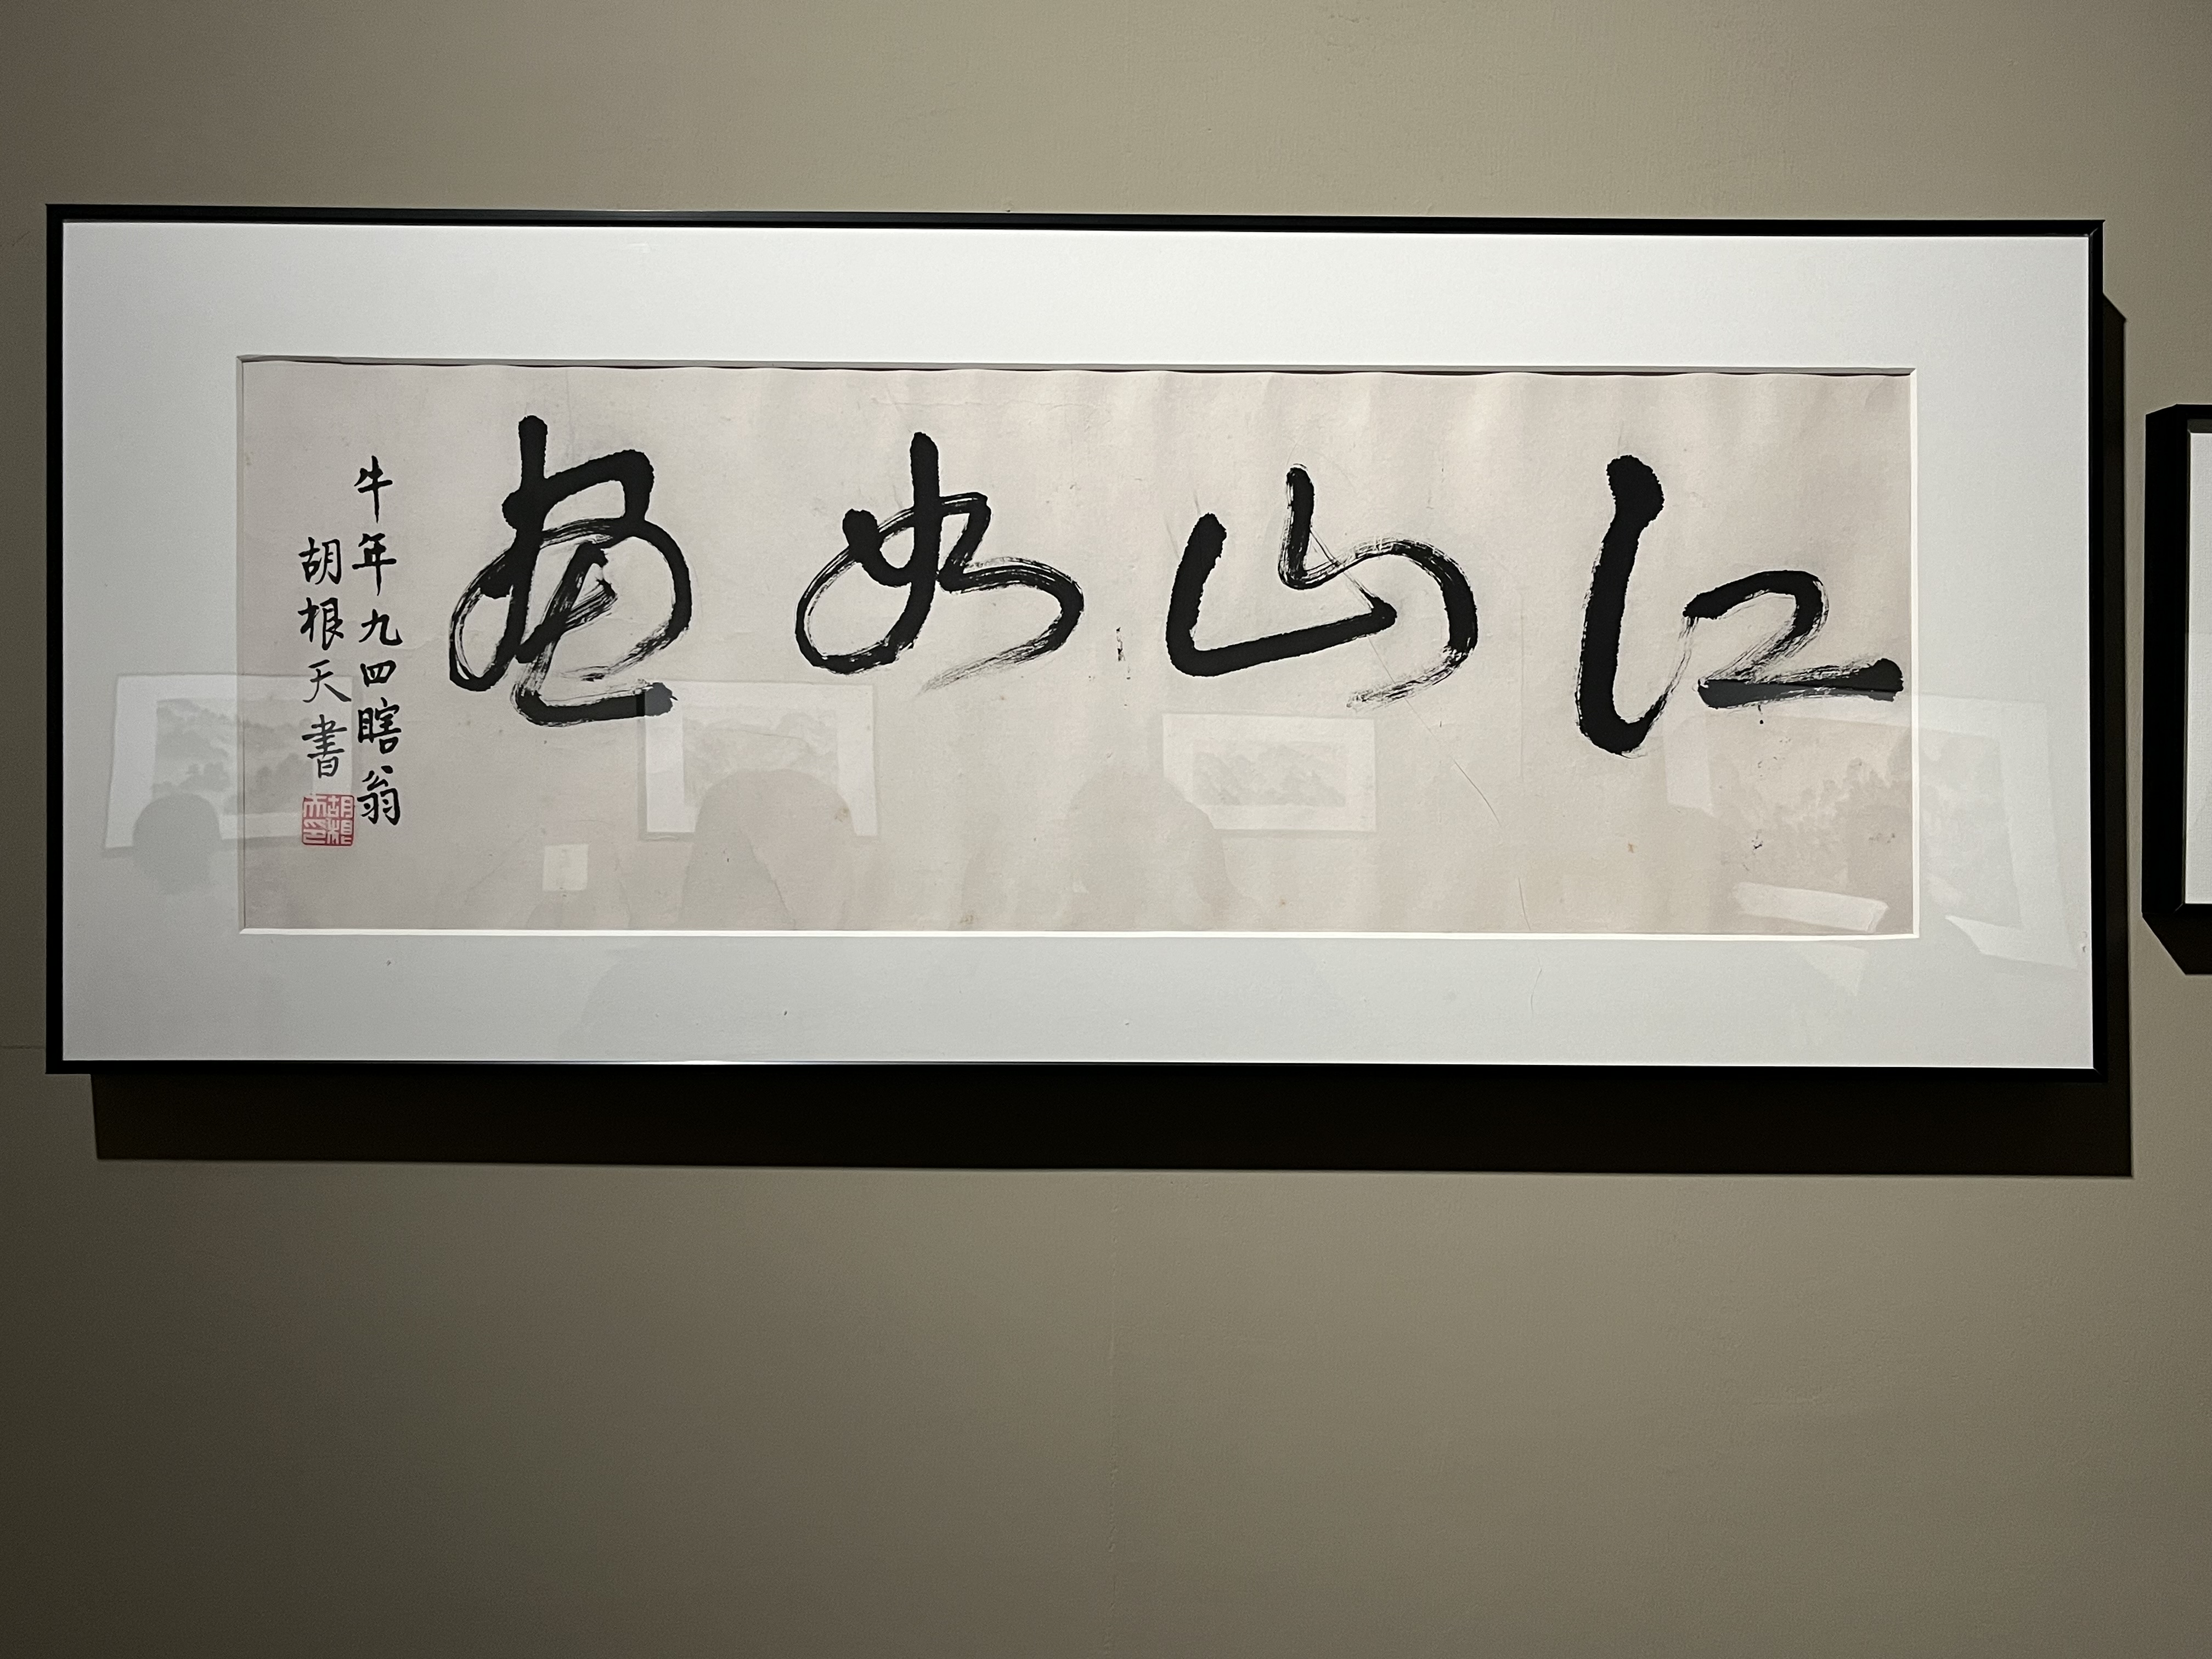 江山如画
牛年九四瞎翁
胡根天書
胡根天印